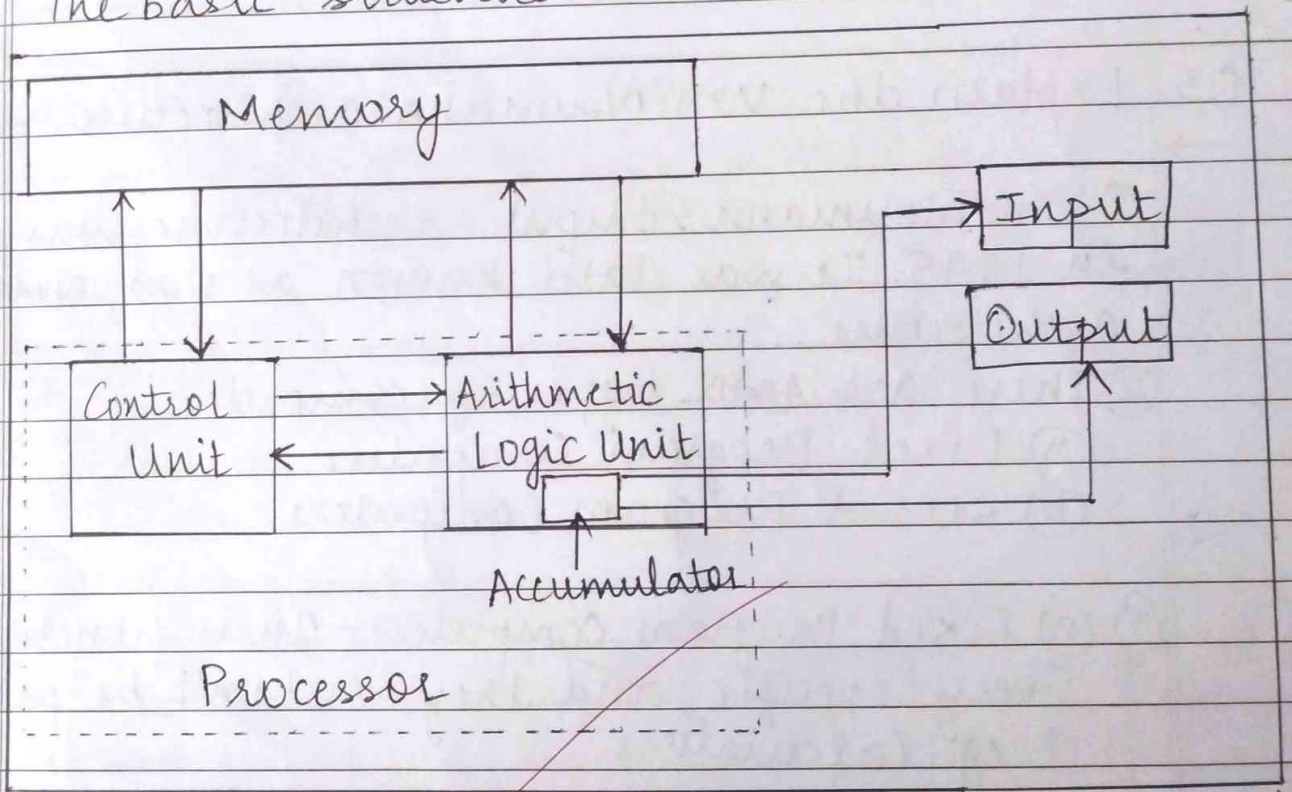 The basic
Memory
Input
Output
Control
Unit
Arithmetic
Logic Unit
Accumulator
Processor